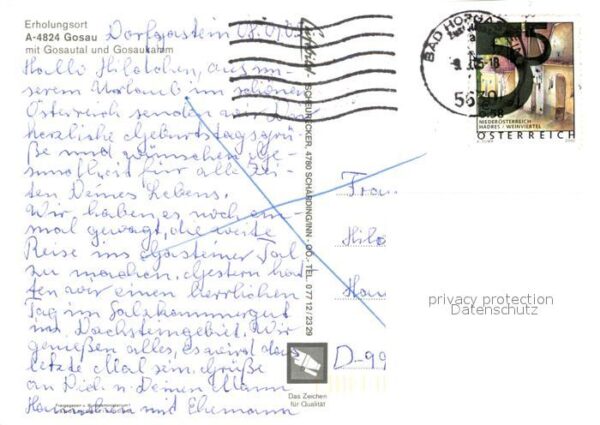 Erholungsort
A-4824 Gosau
mit Gosautal und Gosaukamm
Dorfgastein
Hallo Hildchen, aus un-
serem Urlaub im schönen
Österreich senden wir Dir
herzliche Geburtstagsgrü-
ße und wünschen Ge-
sundheit für alle Zei-
ten Deines Lebens.
Wir haben es noch ein-
mal gewagt, die weite
Reise ins Gasteiner Tal
zu machen. Gestern hat-
ten wir einen herrlichen
Tag im Salzkammergut
im Dachsteingebiet. Wir
genießen alles, es wird das
letzte Mal sein. Grüße
an Dich u. Deinen Mann
Hannelore mit Ehemann
SCHEURECKER, 4780 SCHÄRDING/INN · OÖ. · TEL. 0 77 12 / 23 29
Das Zeichen
für Qualität
BAD HOFGASTEIN
5630
55
NIEDERÖSTERREICH
HADRES - WEINVIERTEL
ÖSTERREICH
Frau
Hild
D-99
privacy protection
Datenschutz